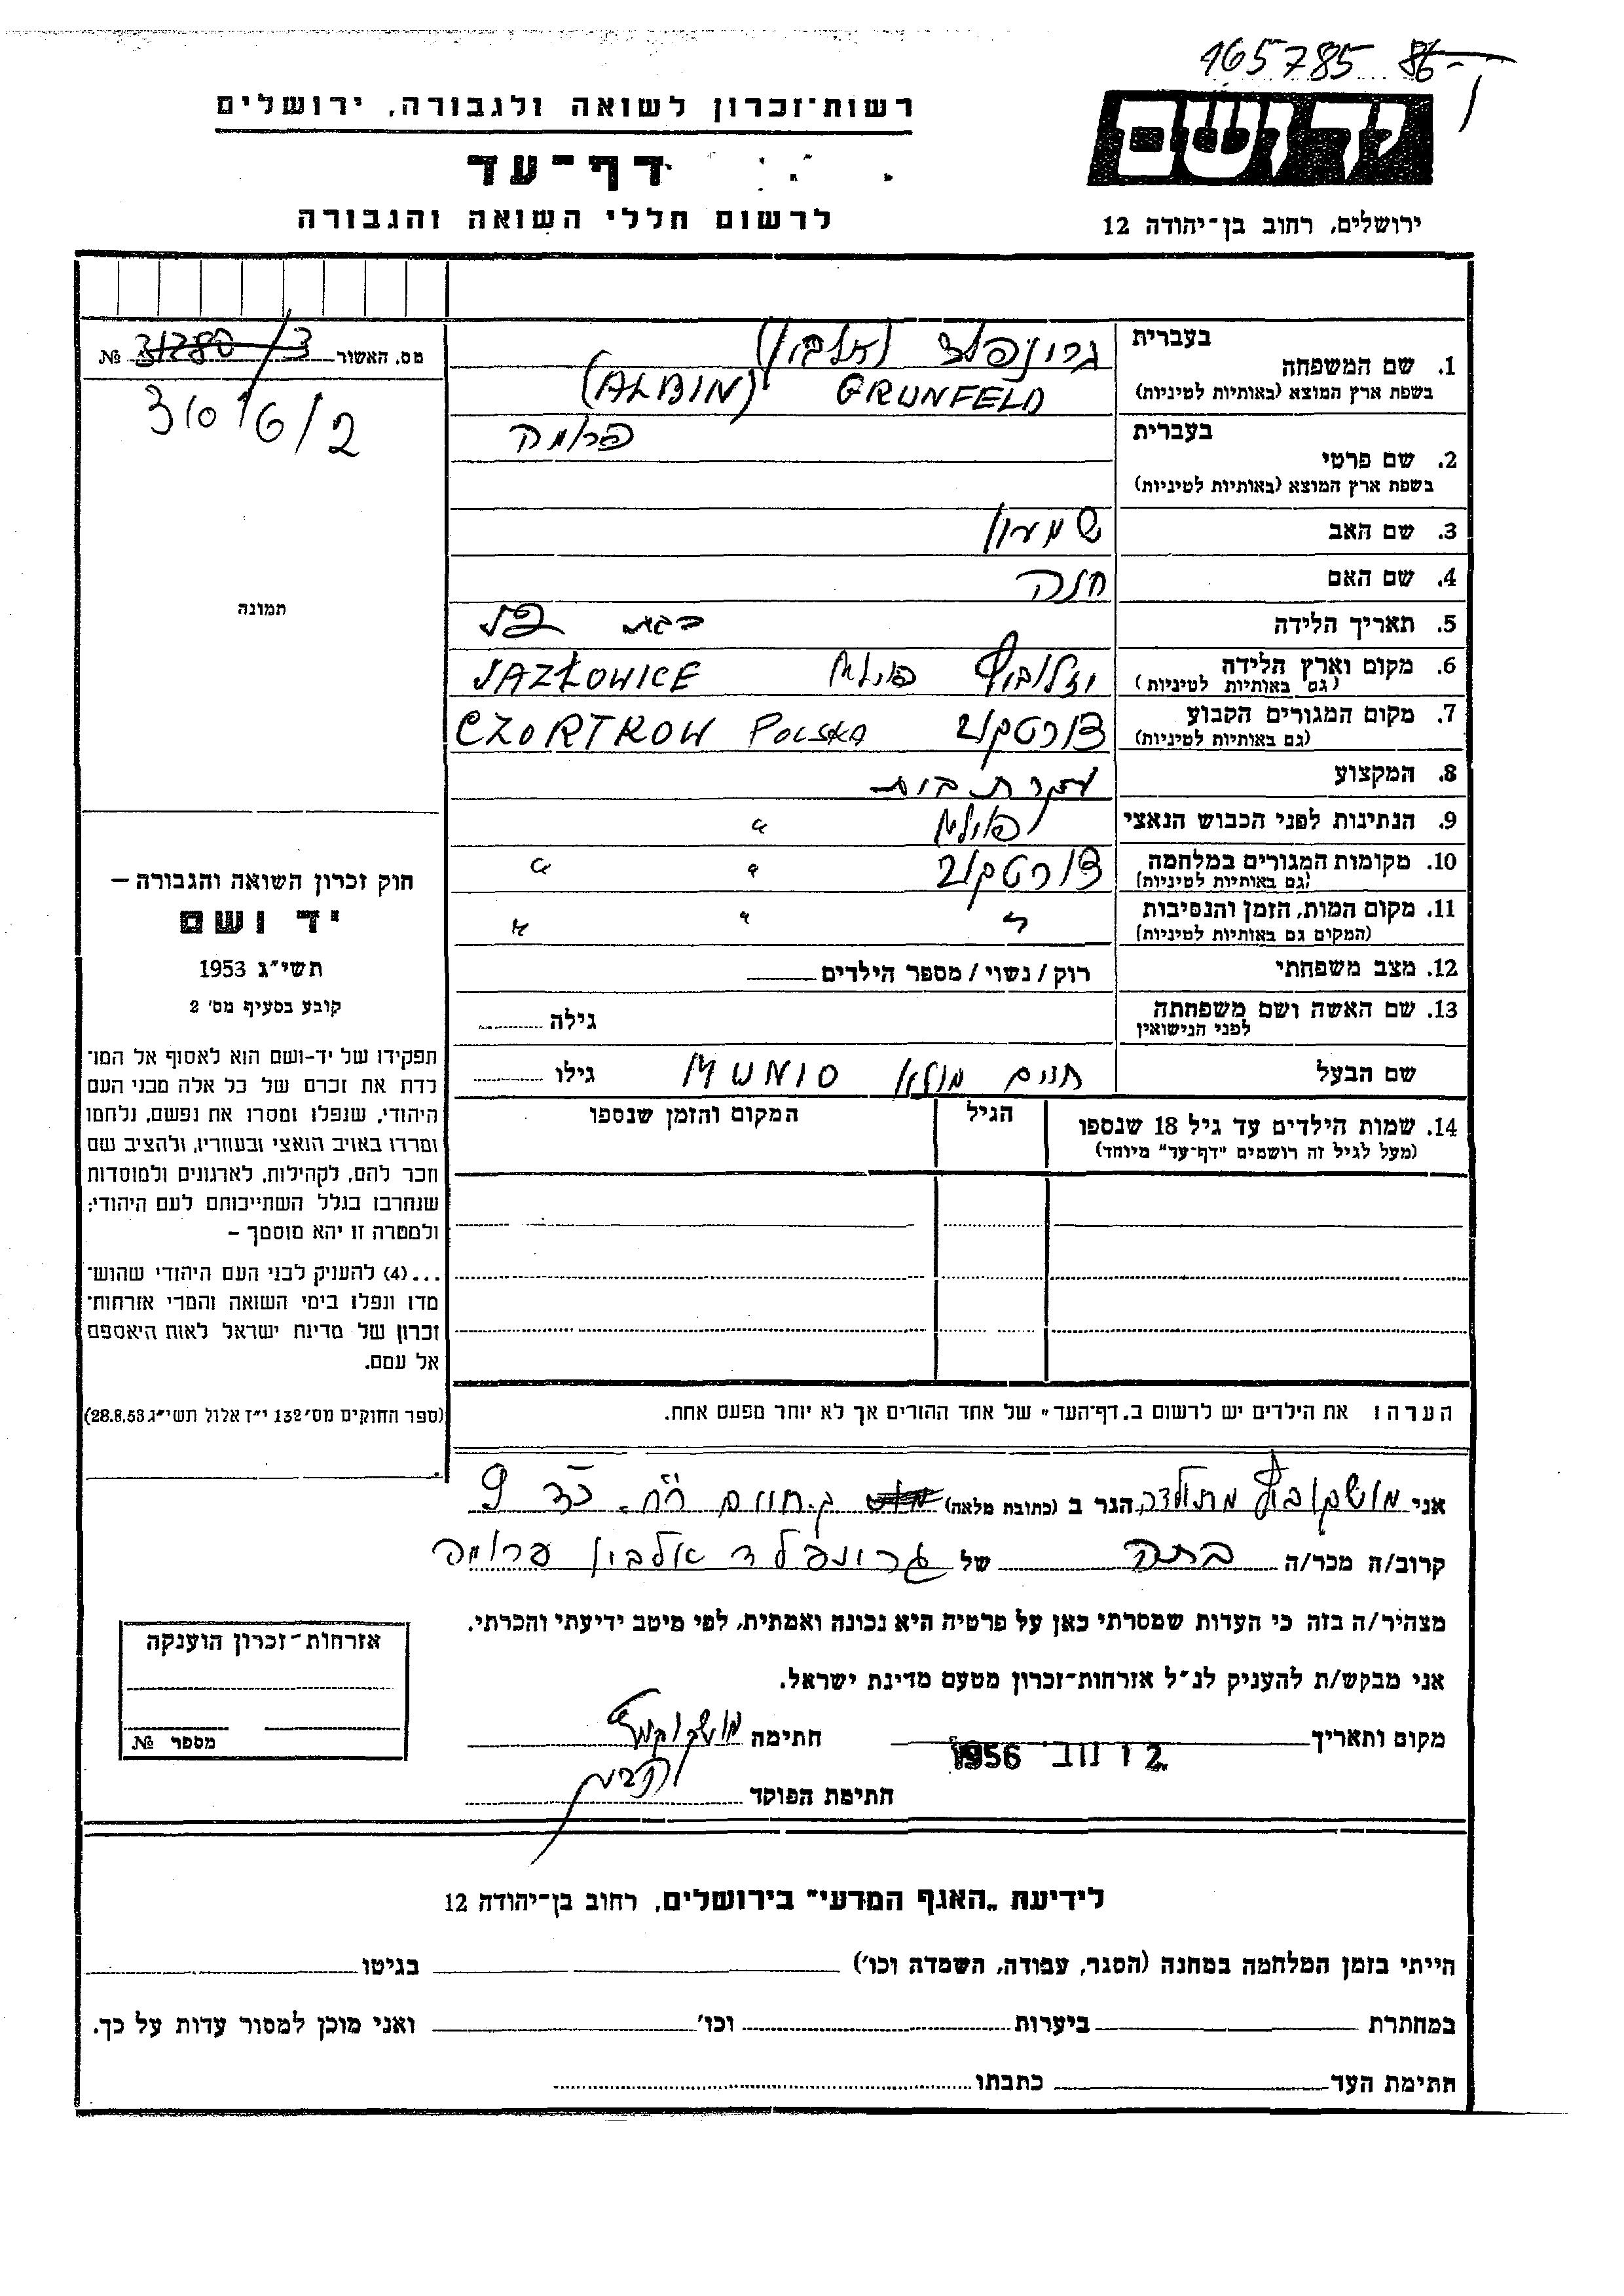 165785 86-
רשות-זכרון לשואה ולגבורה, ירושלים
דף-עד
לרשום חללי השואה והגבורה
ידושם
ירושלים, רחוב בן-יהודה 12
מס. האשור 31780/3 №
3016/2
תמונה
בעברית
1. שם המשפחה
גרונפלד (אלבין)
בשפת ארץ המוצא (באותיות לטיניות)
GRUNFELD (ALBIN)
בעברית
2. שם פרטי
פרומה
בשפת ארץ המוצא (באותיות לטיניות)
3. שם האב שמעון
4. שם האם חנה
5. תאריך הלידה כבת
6. מקום וארץ הלידה פולין JAZŁOWICE
(גם באותיות לטיניות)
7. מקום המגורים הקבוע צ'ורטקוב CZORTKOW POLSKA
(גם באותיות לטיניות)
8. המקצוע עקרת בית
9. הנתינות לפני הכבוש הנאצי פולין "
10. מקומות המגורים במלחמה צ'ורטקוב " "
(גם באותיות לטיניות)
11. מקום המות, הזמן והנסיבות " " "
(המקום גם באותיות לטיניות)
12. מצב משפחתי רוק / נשוי / מספר הילדים
13. שם האשה ושם משפחתה לפני הנישואין גילה
שם הבעל חיים מוניו MUNIO גילו
14. שמות הילדים עד גיל 18 שנספו הגיל המקום והזמן שנספו
(מעל לגיל זה רושמים "דף-עד" מיוחד)
הערה: את הילדים יש לרשום ב"דף-העד" של אחד ההורים אך לא יותר מפעם אחת.
חוק זכרון השואה והגבורה –
יד ושם
תשי"ג 1953
קובע בסעיף מס' 2
תפקידו של יד-ושם הוא לאסוף אל המו-
לדת את זכרם של כל אלה מבני העם
היהודי, שנפלו ומסרו את נפשם, נלחמו
ומרדו באויב הנאצי ובעוזריו, ולהציב שם
וזכר להם, לקהילות, לארגונים ולמוסדות
שנחרבו בגלל השתייכותם לעם היהודי;
ולמטרה זו יהא מוסמך –
...(4) להעניק לבני העם היהודי שהוש-
מדו ונפלו בימי השואה והמרי אזרחות-
זכרון של מדינת ישראל לאות היאספם
אל עמם.
(ספר החוקים מס' 132 י"ז אלול תשי"ג 28.8.53)
אני מושקוביץ מתילדה הגר ב (כתובת מלאה) ק. חיים 9
קרוב/ה מכר/ה בתה של גרונפלד אלבין פרומה
מצהיר/ה בזה כי העדות שמסרתי כאן על פרטיה היא נכונה ואמתית, לפי מיטב ידיעתי והכרתי.
אני מבקש/ת להעניק לנ"ל אזרחות-זכרון מטעם מדינת ישראל.
מקום ותאריך 2 נוב 1956 חתימה
חתימת הפוקד
אזרחות-זכרון הוענקה
מספר №
לידיעת "האגף המדעי" בירושלים, רחוב בן-יהודה 12
הייתי בזמן המלחמה במחנה (הסגר, עבודה, השמדה וכו') בגיטו
במחתרת ביערות וכו' ואני מוכן למסור עדות על כך.
חתימת העד כתבתו